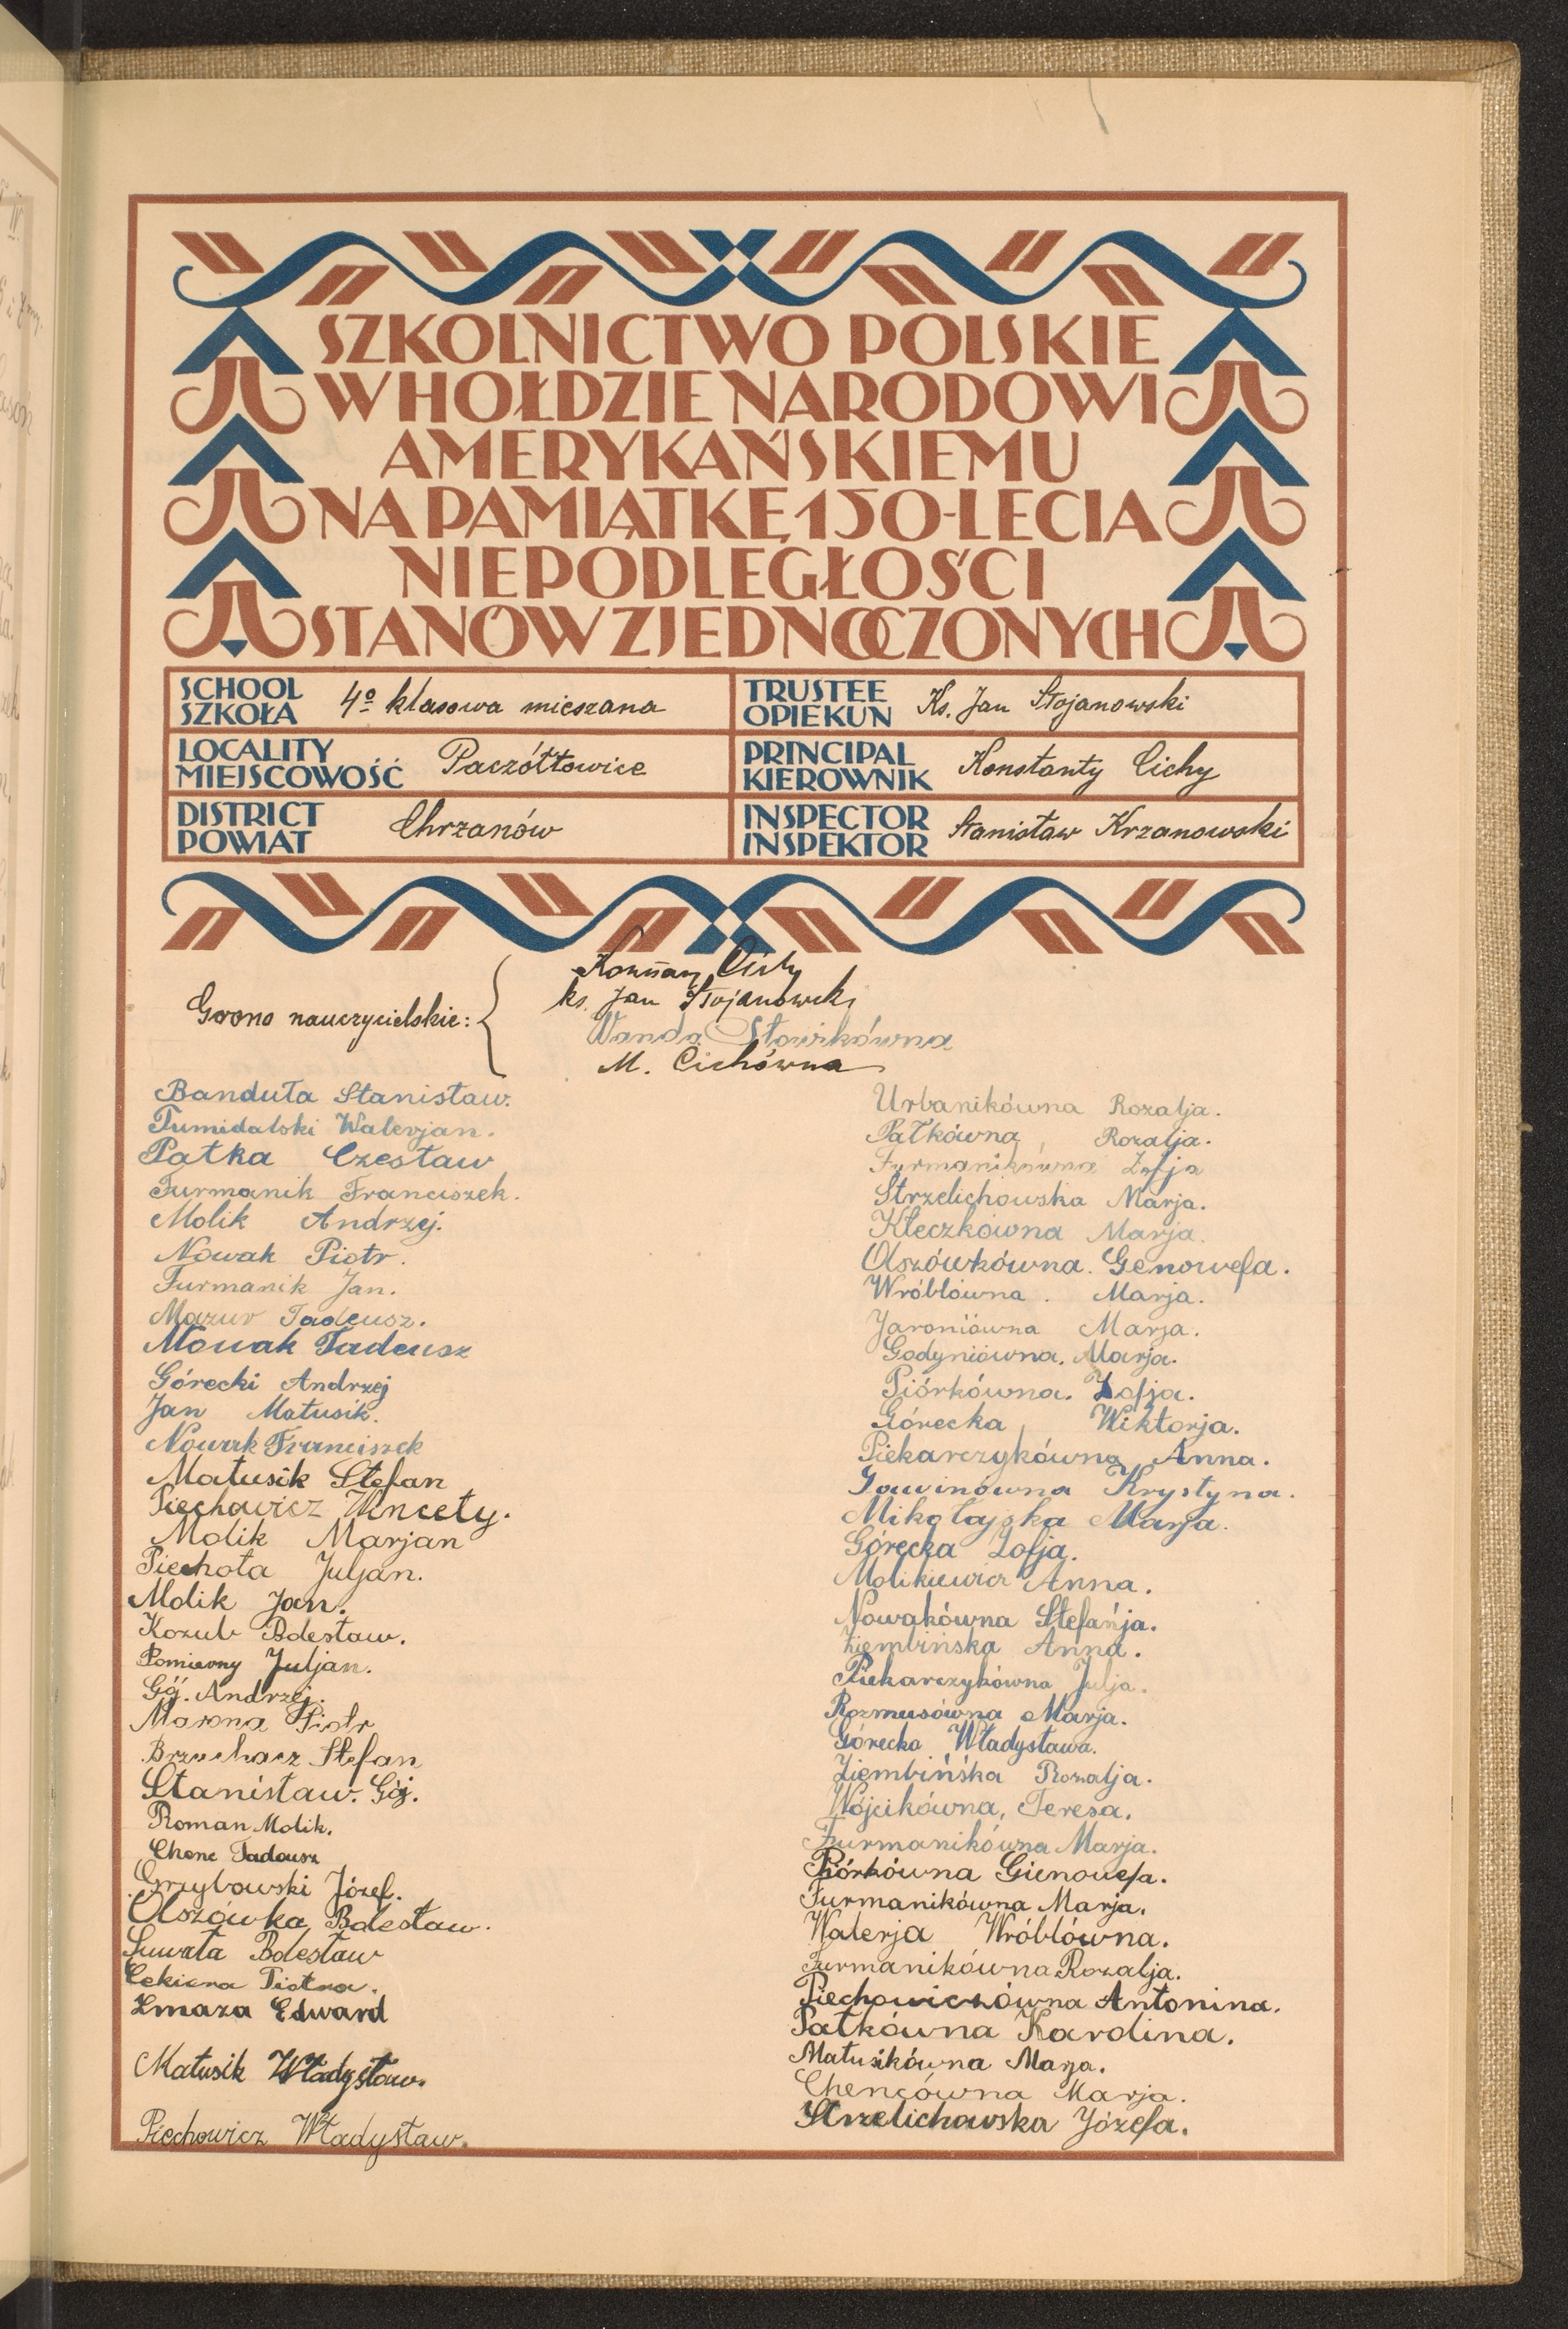 SZKOLNICTWO POLSKIE
W HOŁDZIE NARODOWI
AMERYKAŃSKIEMU
NA PAMIĄTKĘ 150-LECIA
NIEPODLEGŁOŚCI
STANÓW ZJEDNOCZONYCH
SCHOOL
SZKOŁA
4º klasowa mieszana
TRUSTEE
OPIEKUN
Ks. Jan Stojanowski
LOCALITY
MIEJSCOWOŚĆ
Paczółtowice
PRINCIPAL
KIEROWNIK
Konstanty Cichy
DISTRICT
POWIAT
Chrzanów
INSPECTOR
INSPEKTOR
Stanisław Krzanowski
Grono nauczycielskie:
Cichy
ks. Jan Stojanowski
Wanda Słowikówna
M. Cichówna
Banduła Stanisław.
Tumidalski Walerjan.
Pałka Czesław
Furmanik Franciszek.
Molik Andrzej.
Nowak Piotr.
Furmanik Jan.
Mazur Tadeusz.
Nowak Tadeusz
Górecki Andrzej
Jan Matusik.
Nowak Franciszek
Matusik Stefan
Piechowicz Wincety.
Molik Marjan
Piechota Juljan.
Molik Jan.
Kozub Bolesław.
Pomierny Juljan.
Gój. Andrzej.
Marona Piotr
Brzuchacz Stefan
Stanisław. Gój.
Roman Molik.
Chenc Tadeusz
Grzybowski Józef.
Olszówka Bolesław.
Suwała Bolesław
Piotra.
Żmaza Edward
Matusik Władysław.
Piechowicz Władysław.
Urbanikówna Rozalja.
Pałkówna, Rozalja.
Furmanikówna Zofja
Strzelichowska Marja.
Kłeczkówna Marja.
Olszówkówna. Genowefa.
Wróblówna. Marja.
Jaroniówna Marja.
Godyniówna. Marja.
Piórkówna. Zofja.
Górecka, Wiktorja.
Piekarczykówna Anna.
Gawinówna Krystyna.
Mikołajska Marja.
Górecka Zofja.
Molikiewicz Anna.
Nowakówna Stefanja.
Ziembińska Anna.
Piekarczykówna Julja.
Rozmusówna Marja.
Górecka Władysława.
Ziembińska Rozalja.
Wójcikówna, Teresa.
Furmanikówna Marja.
Piórkówna Gienowefa.
Furmanikówna Marja.
Walerja Wróblówna.
Furmanikówna Rozalja.
Piechowiczówna Antonina.
Pałkówna Karolina.
Matusikówna Marja.
Chencówna Marja.
Strzelichowska Józefa.